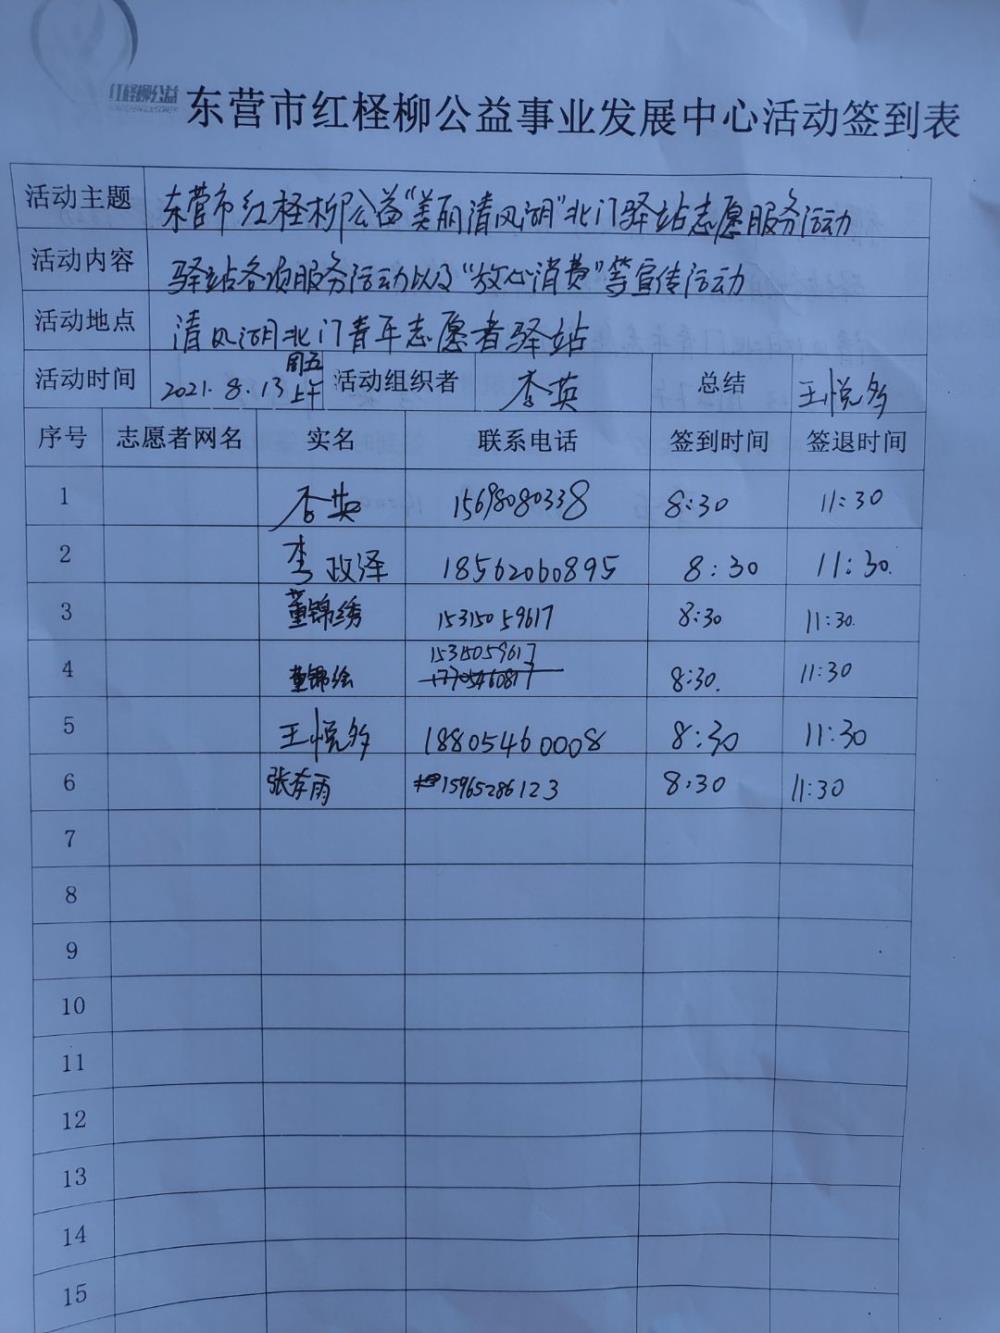 红柽柳公益
东营市红柽柳公益事业发展中心活动签到表
活动主题 东营市红柽柳公益“美丽清风湖”北门驿站志愿服务活动
活动内容 驿站各项服务活动以及“放心消费”等宣传活动
活动地点 清风湖北门青年志愿者驿站
活动时间 2021.8.13 周五上午 活动组织者 李英 总结 王悦多
序号 志愿者网名 实名 联系电话 签到时间 签退时间
1 李英 15698080338 8:30 11:30
2 李政泽 18562060895 8:30 11:30.
3 董锦绣 15315059617 8:30 11:30.
4 董锦绘 15315059617 8:30. 11:30
5 王悦多 18805460008 8:30 11:30
6 张存雨 15965286123 8:30 11:30
7
8
9
10
11
12
13
14
15